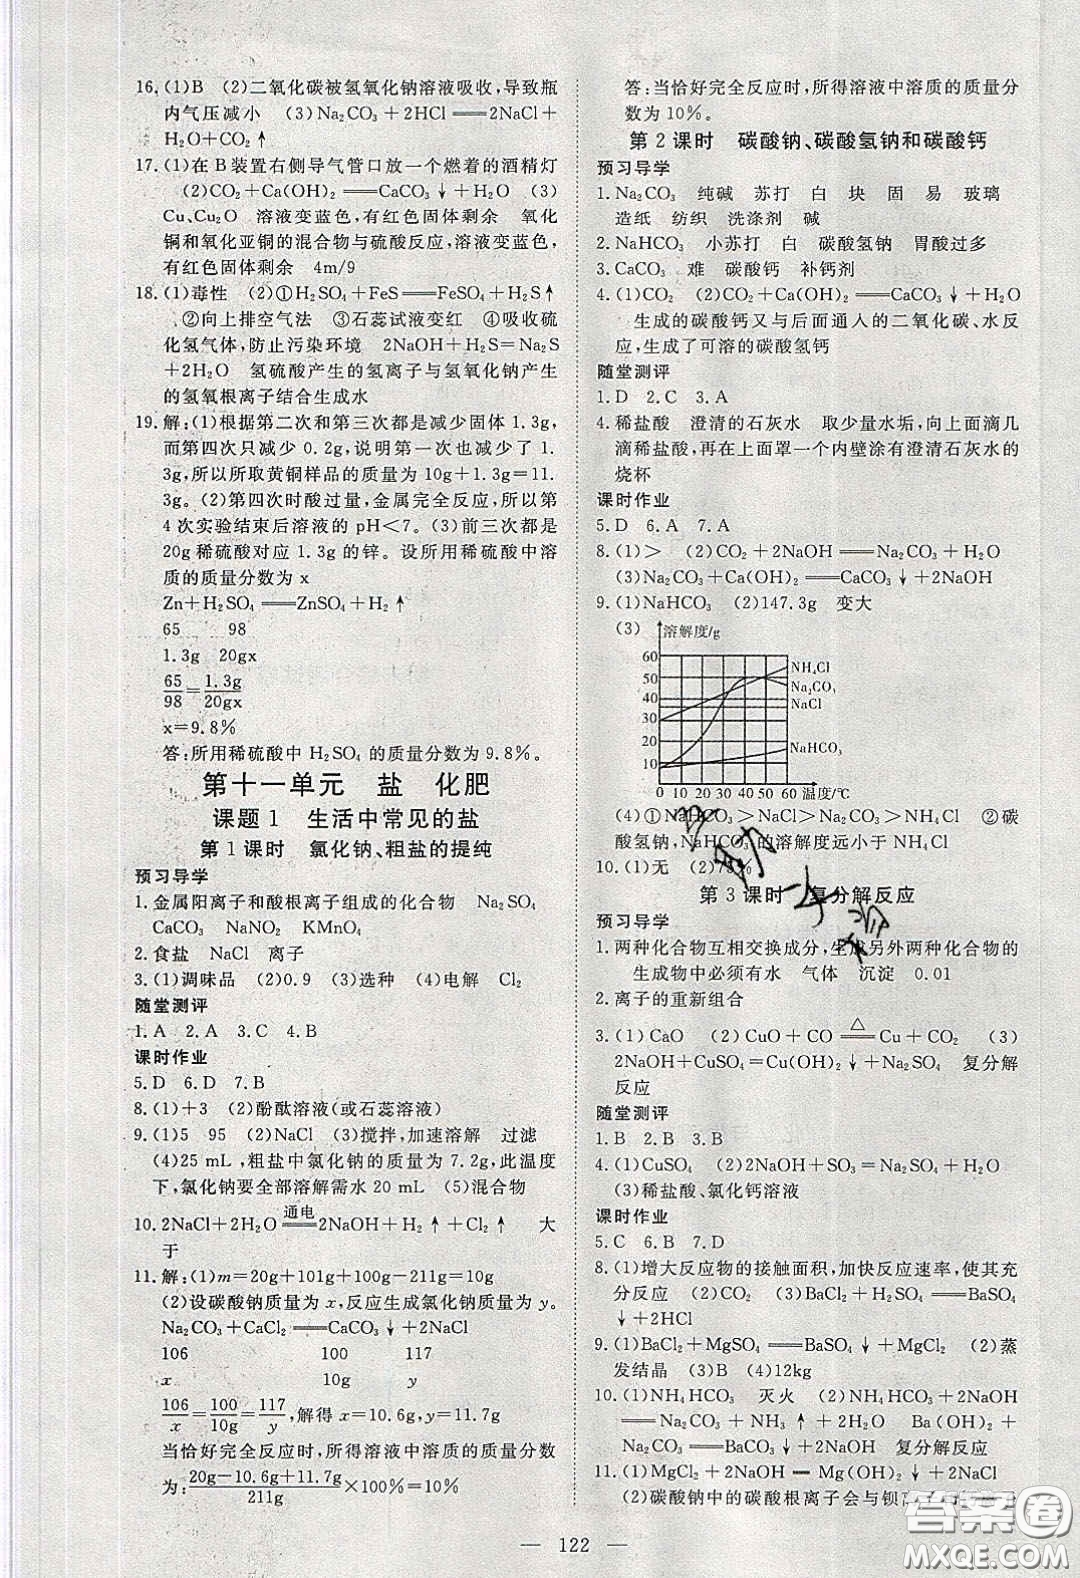 16.(1)B (2)二氧化碳被氢氧化钠溶液吸收,导致瓶
内气压减小 (3)Na₂CO₃+2HCl══2NaCl+
H₂O+CO₂↑
17.(1)在B装置右侧导气管口放一个燃着的酒精灯
(2)CO₂+Ca(OH)₂══CaCO₃↓+H₂O (3)
Cu、Cu₂O 溶液变蓝色,有红色固体剩余 氧化
铜和氧化亚铜的混合物与硫酸反应,溶液变蓝色,
有红色固体剩余 4m/9
18.(1)毒性 (2)①H₂SO₄+FeS══FeSO₄+H₂S↑
②向上排空气法 ③石蕊试液变红 ④吸收硫
化氢气体,防止污染环境 2NaOH+H₂S══Na₂S
+2H₂O 氢硫酸产生的氢离子与氢氧化钠产生
的氢氧根离子结合生成水
19.解:(1)根据第二次和第三次都是减少固体1.3g,
而第四次只减少0.2g,说明第四次反应完了1.
3g,所以所取黄铜样品的质量为10g+1.3g=11.
3g。(2)第四次时酸过量,金属完全反应,所以第
4次实验结束后溶液的pH<7。(3)前三次都是
20g稀硫酸对应1.3g的锌。设所用稀硫酸中溶
质的质量分数为x
Zn+H₂SO₄══ZnSO₄+H₂↑
65 98
1.3g 20gx
65/98=1.3g/20gx
x=9.8%
答:所用稀硫酸中H₂SO₄的质量分数为9.8%。
第十一单元 盐 化肥
课题1 生活中常见的盐
第1课时 氯化钠、粗盐的提纯
预习导学
1.金属阳离子和酸根离子组成的化合物 Na₂SO₄
CaCO₃ NaNO₂ KMnO₄
2.食盐 NaCl 离子
3.(1)调味品 (2)0.9 (3)选种 (4)电解 Cl₂
随堂测评
1.A 2.A 3.C 4.B
课时作业
5.D 6.D 7.B
8.(1)+3 (2)酚酞溶液(或石蕊溶液)
9.(1)5 95 (2)NaCl (3)搅拌,加速溶解 过滤
(4)25 mL,粗盐中氯化钠的质量为7.2g,此温度
下,氯化钠要全部溶解需水20 mL (5)混合物
10.2NaCl+2H₂O═通电═2NaOH+H₂↑+Cl₂↑ 大
于
11.解:(1)m=20g+101g+100g-211g=10g
(2)设碳酸钠质量为x,反应生成氯化钠质量为y。
Na₂CO₃+CaCl₂══CaCO₃↓+2NaCl
106 100 117
x 10g y
106/x=100/10g=117/y,解得x=10.6g,y=11.7g
当恰好完全反应时,所得溶液中溶质的质量分数
为:(20g-10.6g+11.7g)/211g×100%=10%
答:当恰好完全反应时,所得溶液中溶质的质量分
数为10%。
第2课时 碳酸钠、碳酸氢钠和碳酸钙
预习导学
1.Na₂CO₃ 纯碱 苏打 白 块 固 易 玻璃
造纸 纺织 洗涤剂 碱
2.NaHCO₃ 小苏打 白 碳酸氢钠 胃酸过多
3.CaCO₃ 难 碳酸钙 补钙剂
4.(1)CO₂ (2)CO₂+Ca(OH)₂══CaCO₃↓+H₂O
生成的碳酸钙又与后面通入的二氧化碳、水反
应,生成了可溶的碳酸氢钙
随堂测评
1.D 2.C 3.A
4.稀盐酸 澄清的石灰水 取少量水垢,向上面滴几
滴稀盐酸,再在上面罩一个内壁涂有澄清石灰水的
烧杯
课时作业
5.D 6.A 7.A
8.(1)> (2)CO₂+2NaOH══Na₂CO₃+H₂O
(3)Na₂CO₃+Ca(OH)₂══CaCO₃↓+2NaOH
9.(1)NaHCO₃ (2)147.3g 变大
(3)
溶解度/g
60
50
40
30
20
10
0 10 20 30 40 50 60 温度/℃
NH₄Cl
Na₂CO₃
NaCl
NaHCO₃
(4)①NaHCO₃>NaCl>Na₂CO₃>NH₄Cl ②碳
酸氢钠,NaHCO₃的溶解度远小于NH₄Cl
10.(1)无
第3课时 复分解反应
预习导学
1.两种化合物互相交换成分,生成另外两种化合物的
生成物中必须有水 气体 沉淀 0.01
2.离子的重新组合
3.(1)CaO (2)CuO+CO═△═Cu+CO₂ (3)
2NaOH+CuSO₄══Cu(OH)₂↓+Na₂SO₄ 复分解
反应
随堂测评
1.B 2.B 3.B
4.(1)CuSO₄ (2)2NaOH+SO₃══Na₂SO₄+H₂O
(3)稀盐酸、氯化钙溶液
课时作业
5.C 6.B 7.D
8.(1)增大反应物的接触面积,加快反应速率,使其充
分反应 (2)CO₂ (3)BaCl₂+H₂SO₄══BaSO₄
↓+2HCl
9.(1)BaCl₂+MgSO₄══BaSO₄↓+MgCl₂ (2)蒸
发结晶 (3)B (4)12kg
10.(1)NH₄HCO₃ 灭火 (2)NH₄HCO₃+2NaOH
══Na₂CO₃+NH₃↑+2H₂O Ba(OH)₂+
Na₂CO₃══BaCO₃↓+2NaOH 复分解反应
11.(1)MgCl₂+2NaOH══Mg(OH)₂↓+2NaCl
(2)碳酸钠中的碳酸根离子会与钡
— 122 —
答案圈
MXQE.COM